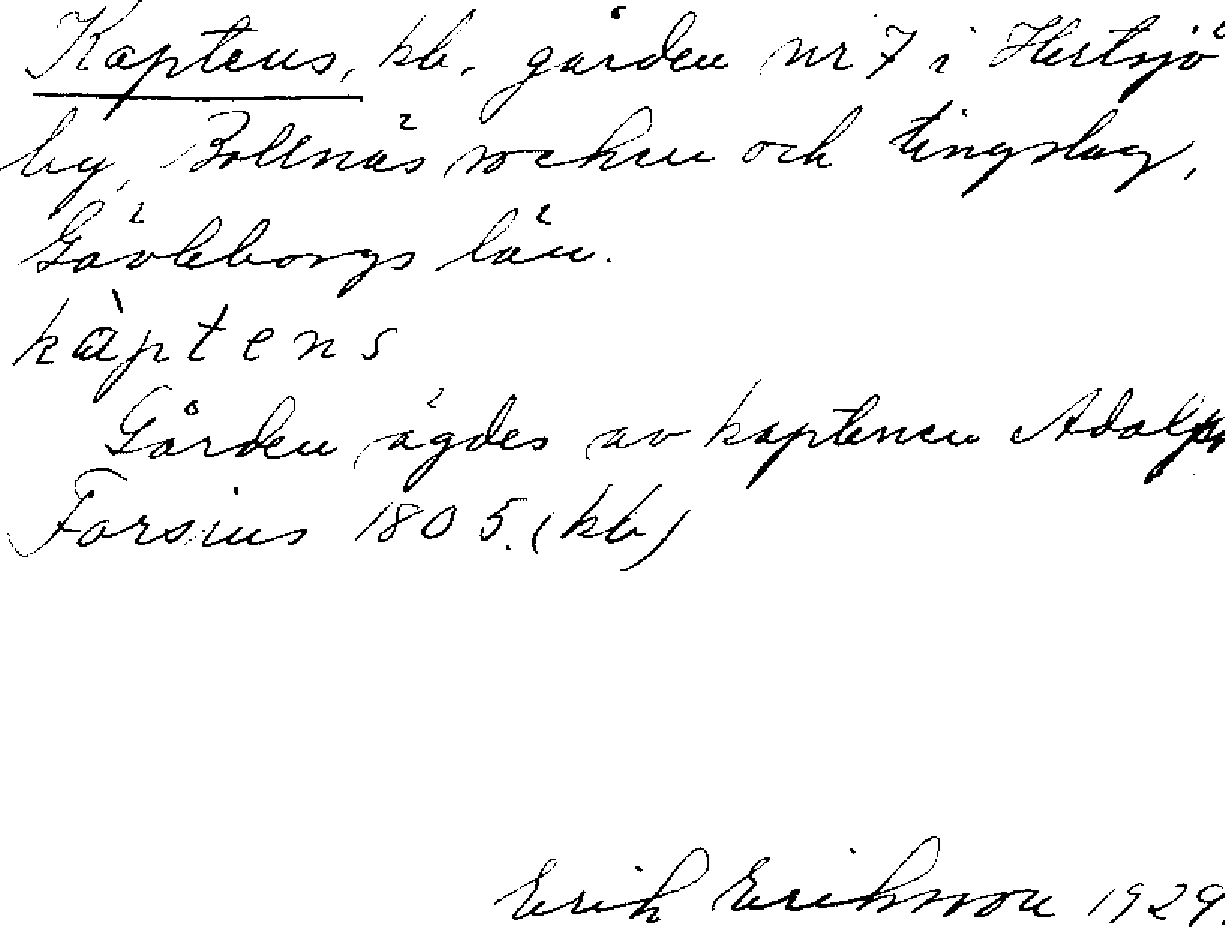 Kaptens, kb. gården nr 7 i Hertsjö
by, Bollnäs socken och tingslag,
Gävleborgs län.
kàptens
Gården ägdes av kaptenen Adolph
Forsius 1805. (kb)
Erik Eriksson 1929.